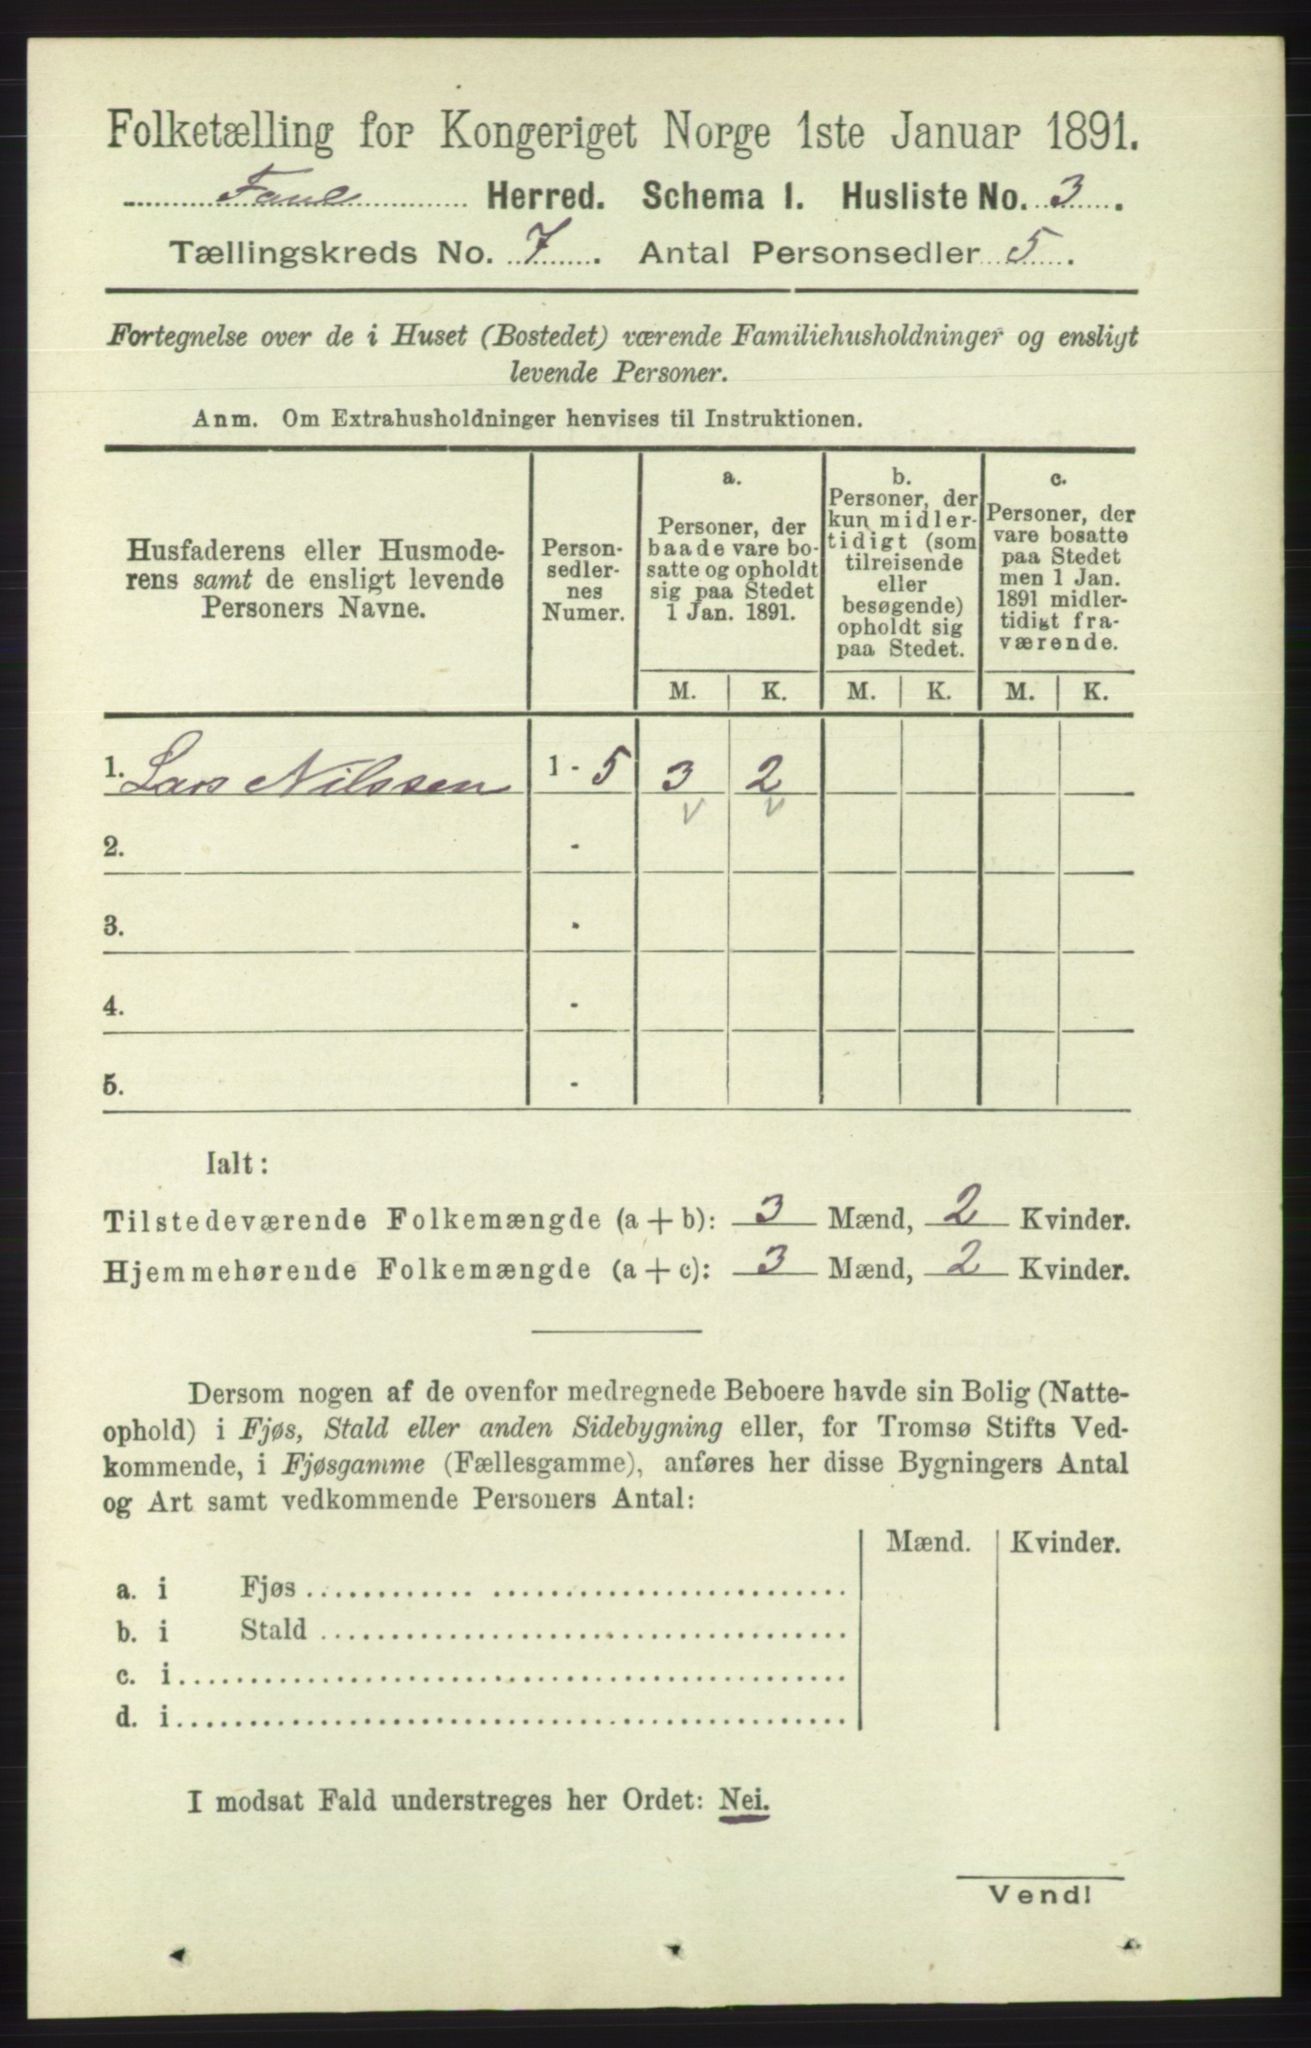 Folketælling for Kongeriget Norge 1ste Januar 1891.
Fane Herred. Schema I. Husliste No. 3.
Tællingskreds No. 7. Antal Personsedler 5.
Fortegnelse over de i Huset (Bostedet) værende Familiehusholdninger og ensligt
levende Personer.
Anm. Om Extrahusholdninger henvises til Instruktionen.
Husfaderens eller Husmode-
rens samt de ensligt levende
Personers Navne.
Person-
sedler-
nes
Numer.
a.
Personer, der
baade vare bo-
satte og opholdt
sig paa Stedet
1 Jan. 1891.
b.
Personer, der
kun midler-
tidigt (som
tilreisende
eller
besøgende)
opholdt sig
paa Stedet.
c.
Personer, der
vare bosatte
paa Stedet
men 1 Jan.
1891 midler-
tidigt fra-
værende.
M. K. M. K. M. K.
1. Lars Nilssen 1 - 5 3 2
v v
2. -
3. -
4. -
5. -
Ialt:
Tilstedeværende Folkemængde (a + b): 3 Mænd, 2 Kvinder.
Hjemmehørende Folkemængde (a + c): 3 Mænd, 2 Kvinder.
Dersom nogen af de ovenfor medregnede Beboere havde sin Bolig (Natte-
ophold) i Fjøs, Stald eller anden Sidebygning eller, for Tromsø Stifts Ved-
kommende, i Fjøsgamme (Fællesgamme), anføres her disse Bygningers Antal
og Art samt vedkommende Personers Antal:
Mænd. Kvinder.
a. i Fjøs
b. i Stald
c. i
d. i
I modsat Fald understreges her Ordet: Nei.
Vend!